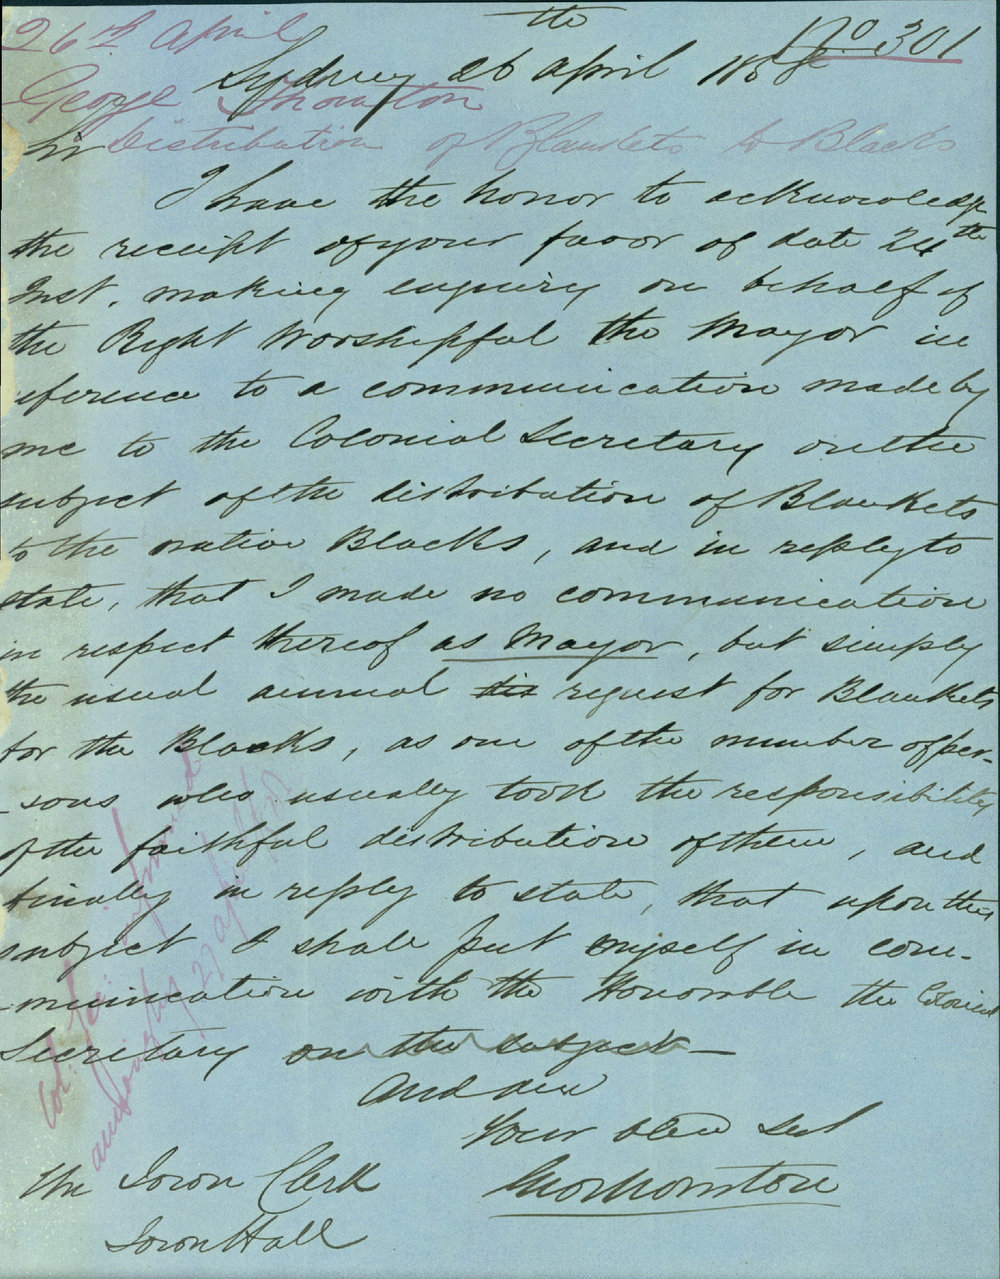 No 301
26th April
George Thornton
Distribution of Blankets to Blacks
Sydney 26th April 185
Sir
I have the honor to acknowledge
the receipt of your favor of date 24th
Inst. making enquiry on behalf of
the Right Worshipful the Mayor in
reference to a communication made by
me to the Colonial Secretary on the
subject of the distribution of Blankets
to the native Blacks, and in reply to
state, that I made no communication
in respect thereof as Mayor, but simply
the usual annual request for Blankets
for the Blacks, as one of the number of per-
-sons who usually took the responsibility
of the faithful distribution of them, and
finally in reply to state, that upon this
subject I shall put myself in com-
-munication with the Honorable the Colonial
Secretary on the subject —
And am
Your obed Sert
Geo Thornton
The Town Clerk
Town Hall
Col. Sec. informed
accordingly 27 april